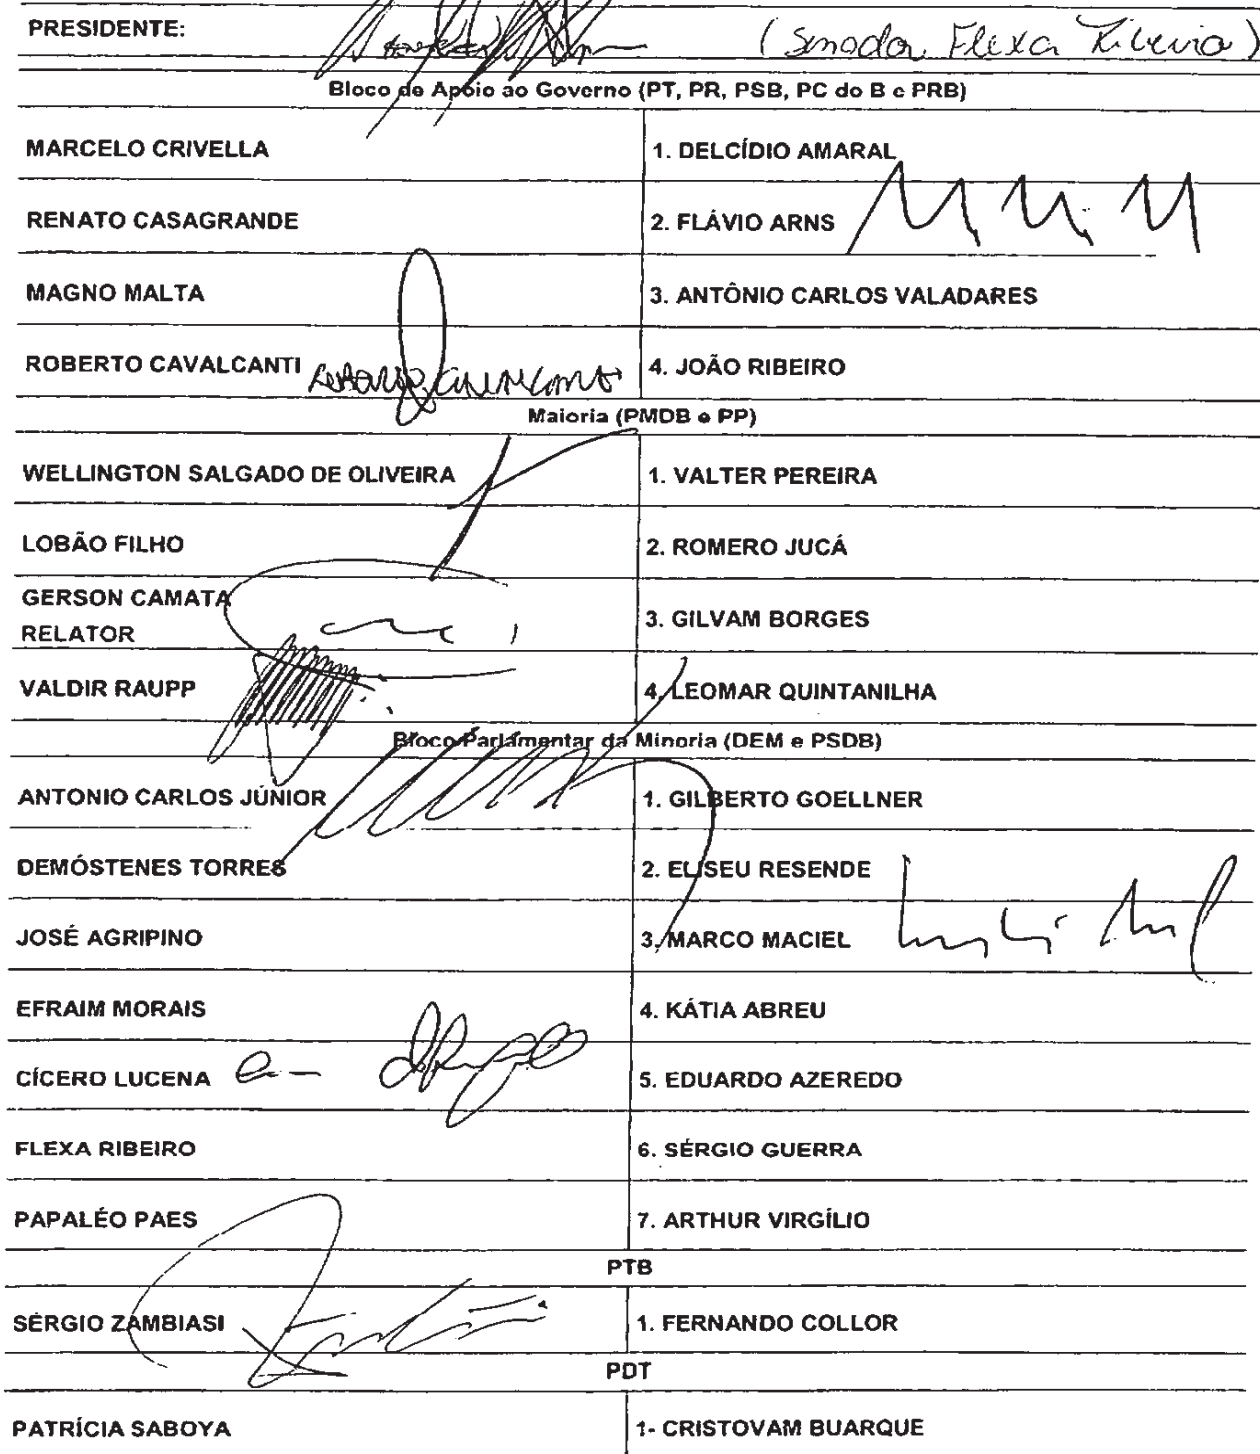 PRESIDENTE: (Senador Flexa Ribeiro)
Bloco de Apoio ao Governo (PT, PR, PSB, PC do B e PRB)
MARCELO CRIVELLA 1. DELCÍDIO AMARAL
RENATO CASAGRANDE 2. FLÁVIO ARNS
MAGNO MALTA 3. ANTÔNIO CARLOS VALADARES
ROBERTO CAVALCANTI Roberto Cavalcanti 4. JOÃO RIBEIRO
Maioria (PMDB e PP)
WELLINGTON SALGADO DE OLIVEIRA 1. VALTER PEREIRA
LOBÃO FILHO 2. ROMERO JUCÁ
GERSON CAMATA
RELATOR 3. GILVAM BORGES
VALDIR RAUPP 4. LEOMAR QUINTANILHA
Bloco Parlamentar da Minoria (DEM e PSDB)
ANTONIO CARLOS JÚNIOR 1. GILBERTO GOELLNER
DEMÓSTENES TORRES 2. ELISEU RESENDE
JOSÉ AGRIPINO 3. MARCO MACIEL
EFRAIM MORAIS 4. KÁTIA ABREU
CÍCERO LUCENA 5. EDUARDO AZEREDO
FLEXA RIBEIRO 6. SÉRGIO GUERRA
PAPALÉO PAES 7. ARTHUR VIRGÍLIO
PTB
SÉRGIO ZAMBIASI 1. FERNANDO COLLOR
PDT
PATRÍCIA SABOYA 1- CRISTOVAM BUARQUE